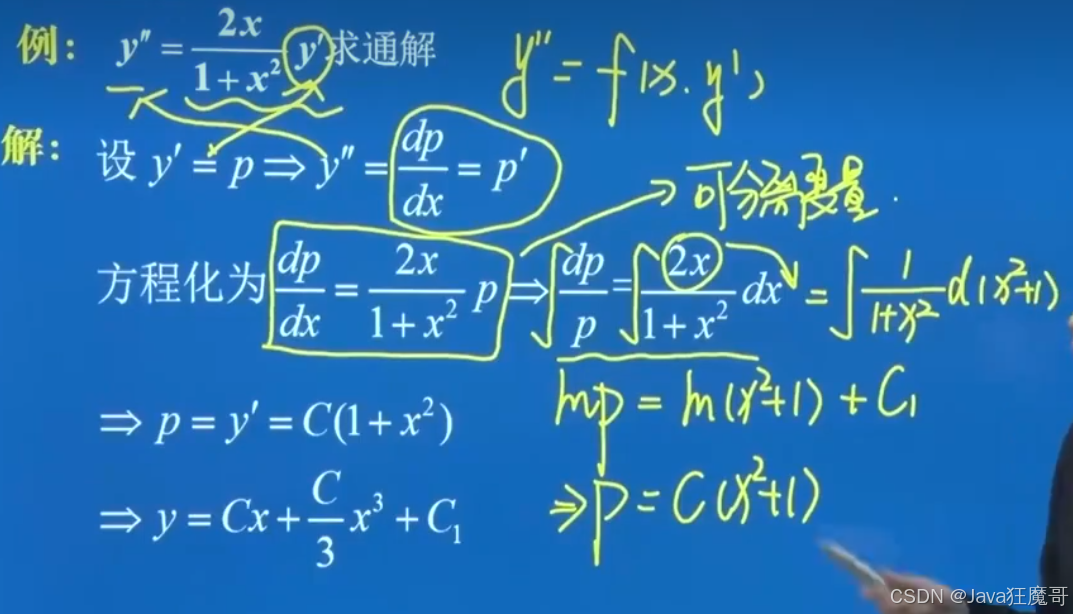 例： y″ = 2x/(1+x²) y′ 求通解
y″ = f(x, y′)
解： 设 y′ = p ⇒ y″ = dp/dx = p′
可分离变量.
方程化为 dp/dx = 2x/(1+x²) p ⇒ ∫ dp/p = ∫ 2x/(1+x²) dx = ∫ 1/(1+x²) d(x²+1)
ln p = ln(x²+1) + C₁
⇒ p = y′ = C(1+x²)
⇒ p = C(x²+1)
⇒ y = Cx + C/3 x³ + C₁
CSDN @Java狂魔哥